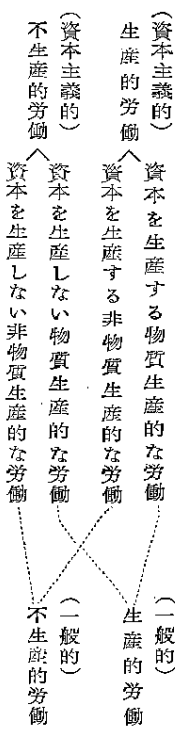 (資本主義的)
生産的労働
(資本主義的)
不生産的労働
資本を生産する物質生産的な労働
資本を生産する非物質生産的な労働
資本を生産しない物質生産的な労働
資本を生産しない非物質生産的な労働
(一般的)
生産的労働
(一般的)
不生産的労働